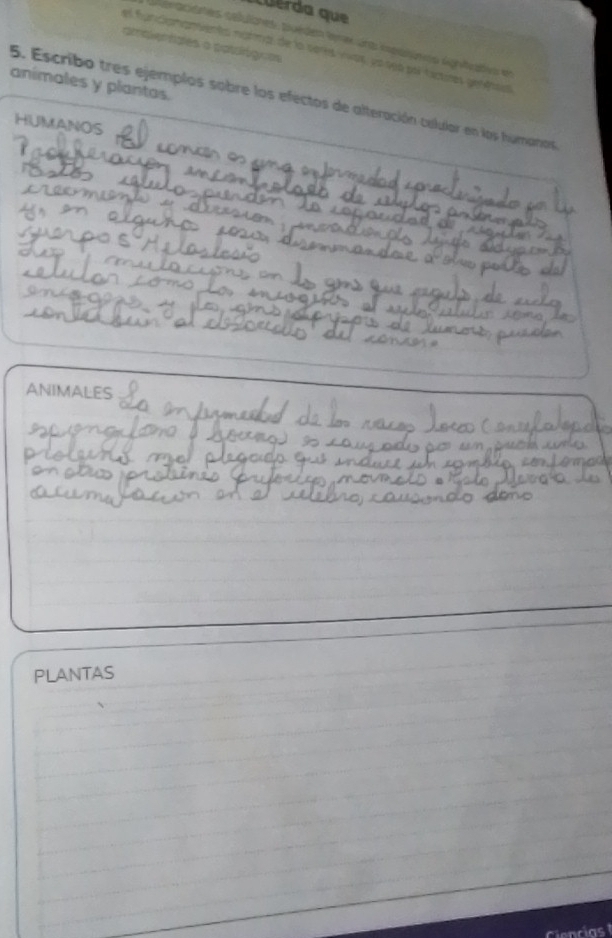 cuerda que
alteraciones celulares pueden tener una importancia significativa en
el funcionamiento normal de los seres vivos, ya sea por factores genéticos,
ambientales o patológicos
5. Escribo tres ejemplos sobre los efectos de alteración celular en los humanos,
animales y plantas.
HUMANOS El cancer es una enfermedad caracterizado po la
Proliferacion incontrolado de celulas anormales
Estos celulas pierden la capacidad de regular su
crecimiento y division, invadiendo tejido adyacente
y, en alguno casos diseminandose a otro partes del
cuerpo s Metastasis
mutacions en los gens que regula de ciclo
celular como los oncogenes el ciclo celular como lo
oncogenes y los gens supresores de tumores pueden
contribuir al desarrollo del cancer.
ANIMALES La enfermedad de las vacas loca (encefalopatia
espongiforme bovina) es causado po un prion una
proteina mal plegada que induce un cambio conformaci
en otros proteinas prionicas normales. Esto lleva a la
acumulacion en el celebro, causando dano
PLANTAS
Ciencias